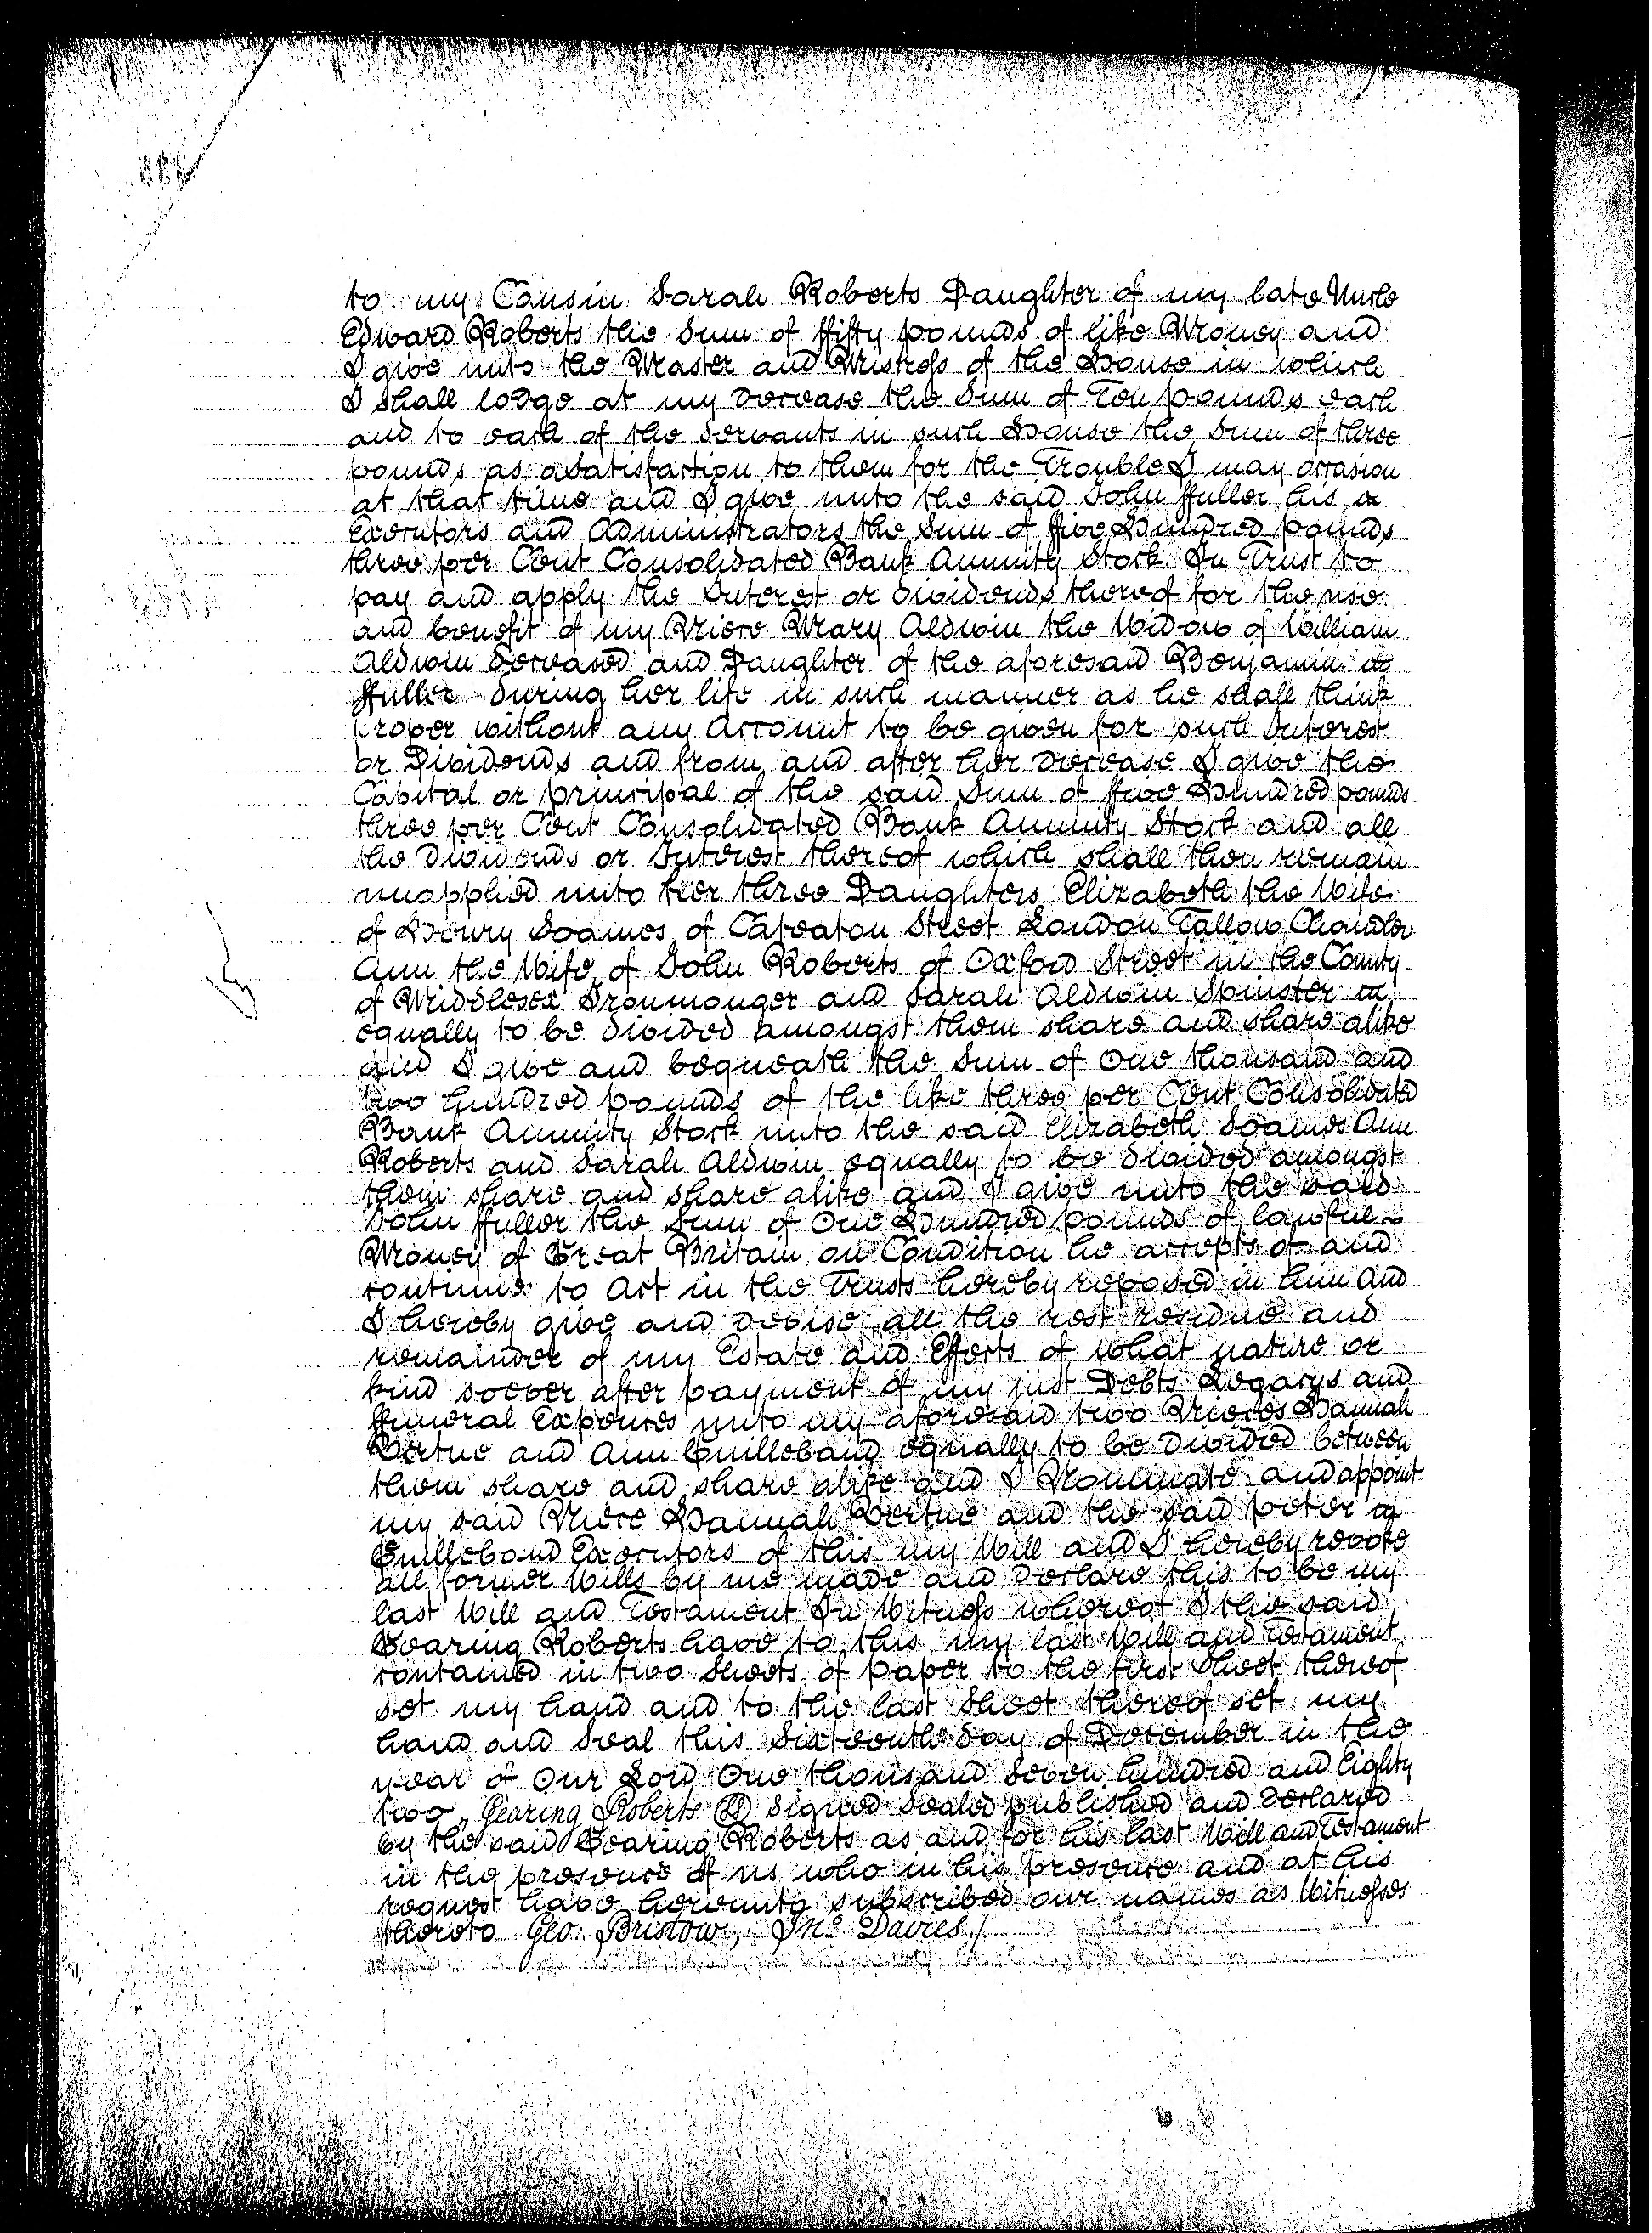 to my Cousin Sarah Roberts Daughter of my late Uncle
Edward Roberts the Sum of ffifty pounds of like Money and
I give unto the Master and Mistress of the House in which
I shall lodge at my decease the Sum of Ten pounds each
and to each of the Servants in such House the Sum of three
pounds as a Satisfaction to them for the Trouble I may occasion
at that time and I give unto the said John ffuller his
Executors and Administrators the Sum of ffive Hundred pounds
three per Cent Consolidated Bank Annuity Stock In Trust to
pay and apply the Interest or Dividends thereof for the use
and benefit of my Niece Mary Aldwin the Widow of William
Aldwin deceased and Daughter of the aforesaid Benjamin
ffuller during her life in such manner as he shall think
proper without any Account to be given for such Interest
or Dividends and from and after her decease I give the
Capital or principal of the said Sum of ffive Hundred pounds
three per Cent Consolidated Bank Annuity Stock and all
the Dividends or Interest thereof which shall then remain
unapplied unto her three Daughters Elizabeth the Wife
of Henry Soames of Cateaton Street London Tallow Chandler
Ann the Wife of John Roberts of Oxford Street in the County
of Middlesex Ironmonger and Sarah Aldwin Spinster
equally to be divided amongst them share and share alike
and I give and bequeath the Sum of One thousand and
two hundred pounds of the like three per Cent Consolidated
Bank Annuity Stock unto the said Elizabeth Soames Ann
Roberts and Sarah Aldwin equally to be divided amongst
them share and share alike and I give unto the said
John ffuller the Sum of One Hundred pounds of lawful
Money of Great Britain on Condition he accepts of and
continue to Act in the Trusts hereby reposed in him And
I hereby give and devise all the rest residue and
remainder of my Estate and Effects of what nature or
kind soever after payment of my just Debts Legacys and
ffuneral Expences unto my aforesaid two Nieces Hannah
Vertue and Ann Guillebaud equally to be divided between
them share and share alike and I Nominate and appoint
my said Niece Hannah Vertue and the said peter
Guillebaud Executors of this my Will and I hereby revoke
all former Wills by me made and declare this to be my
last Will and Testament In Witness whereof I the said
Gearing Roberts have to this my last Will and Testament
contained in two Sheets of paper to the first Sheet thereof
set my hand and to the last Sheet thereof set my
hand and Seal this Sixteenth day of December in the
year of Our Lord One thousand Seven hundred and Eighty
two Gearing Roberts LS Signed Sealed published and declared
by the said Gearing Roberts as and for his last Will and Testament
in the presence of us who in his presence and at his
request have hereunto subscribed our names as Witnesses
thereto Geo: Bristow, Jno Davies /